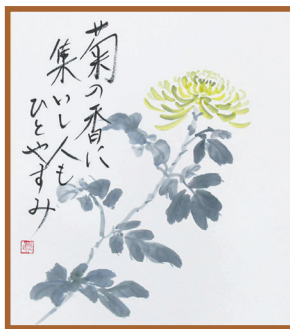 菊の香に
集いし人も
ひとやすみ